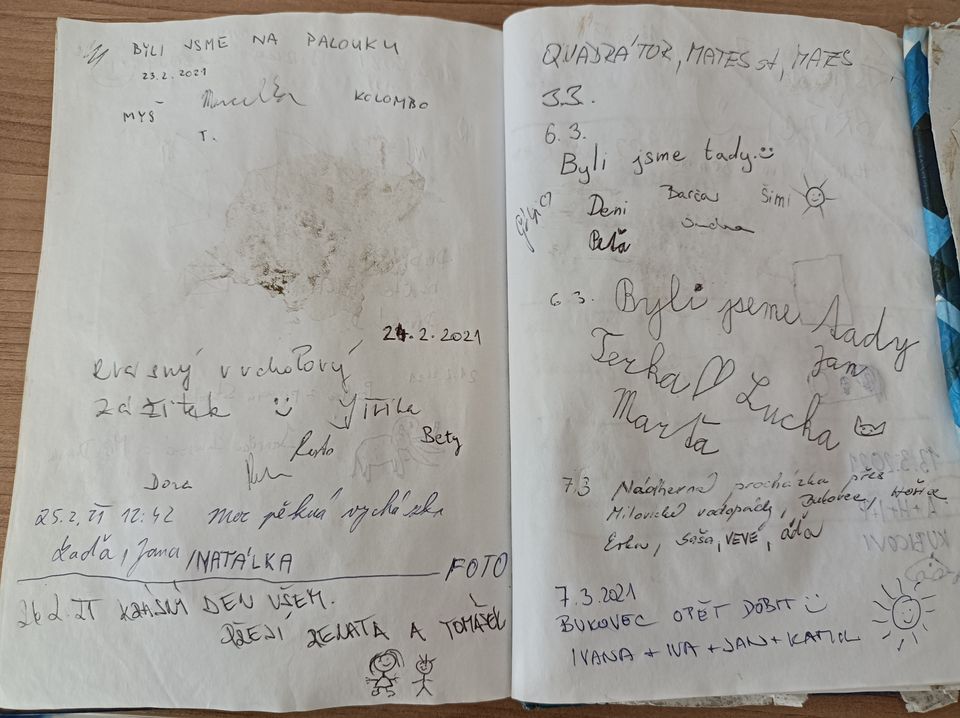 BYLI JSME NA PALOUKU
23.2.2021
MYŠ KOLOMBO
T.
24.2.2021
vrcholový
zážitek Jiřík
Bety
Dora
25.2.21 12:42 moc pěkná vycházka
Laďa, Jana /NATÁLKA
FOTO
26.2.21 KRÁSNÍ DEN VŠEM.
PŘEJÍ RENATA A TOMÁŠEK
QUADRÁTOR, MATES st, MATES
3.3.
6.3.
Byli jsme tady.
Deni Barča Šimi
Peťa
6.3. Byli jseme tady
Terka Lucka Jan
Marťa
7.3 Nádherná procházka přes
Milovické vodopády, Bukovec, Hořice
Erka, Saša, VEVÉ, áďa
7.3.2021
BUKOVEC OPĚT DOBIT
IVANA + IVA + JAN + KAMIL